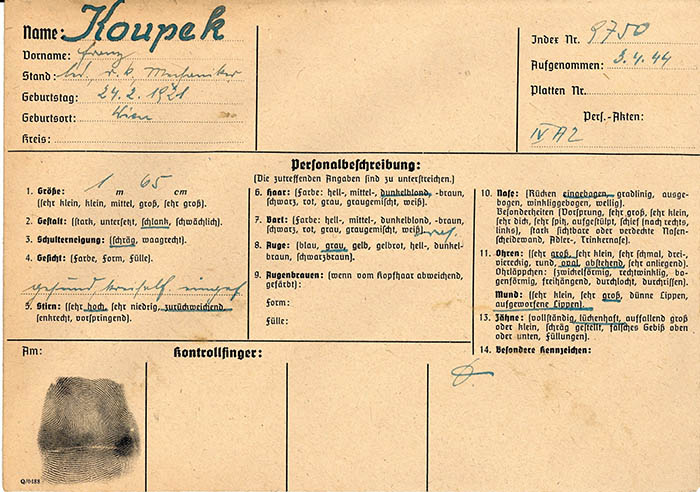 Name: Koupek
Vorname: Franz
Stand: led., r. k. Mechaniker
Geburtstag: 24. 2. 1921
Geburtsort: Wien
Kreis:
Index Nr. 9750
Aufgenommen: 3.4.44
Platten Nr.
Pers.-Akten:
IV A2
Personalbeschreibung:
(Die zutreffenden Angaben sind zu unterstreichen.)
1. Größe: 1 m 65 cm
(sehr klein, klein, mittel, groß, sehr groß).
2. Gestalt: (stark, untersetzt, schlank, schwächlich).
3. Schulterneigung: (schräg, waagrecht).
4. Gesicht: (Farbe, Form, Fülle).
gesund
5. Stirn: (sehr hoch, sehr niedrig, zurückweichend,
senkrecht, vorspringend).
6. Haar: (Farbe: hell-, mittel-, dunkelblond, -braun,
schwarz, rot, grau, graugemischt, weiß)
7. Bart: (Farbe: hell-, mittel-, dunkelblond, -braun,
schwarz, rot, grau, graugemischt, weiß) ras.
8. Auge: (blau, grau, gelb, gelbrot, hell-, dunkel-
braun, schwarzbraun).
9. Augenbrauen: (wenn vom Kopfhaar abweichend,
gefärbt):
Form:
Fülle:
10. Nase: (Rücken eingebogen, gradlinig, ausge-
bogen, winkliggebogen, wellig).
Besonderheiten (Vorsprung, sehr groß, sehr klein,
sehr dick, sehr spitz, aufgestülpt, schief (nach rechts,
links), stark sichtbare oder verdeckte Nasen-
scheidewand, Adler-, Trinkernase).
11. Ohren: (sehr groß, sehr klein, sehr schmal, drei-,
viereckig, rund, oval, abstehend, sehr anliegend).
Ohrläppchen: (zwickelförmig, rechtwinklig, bo-
genförmig, freihängend, durchlocht, durchrissen).
Mund: (sehr klein, sehr groß, dünne Lippen,
aufgeworfene Lippen).
13. Zähne: (vollständig, lückenhaft, auffallend groß
oder klein, schräg gestellt, falsches Gebiß oben
oder unten, Füllungen).
14. Besondere Kennzeichen:
Am:
Kontrollfinger:
Q/0488